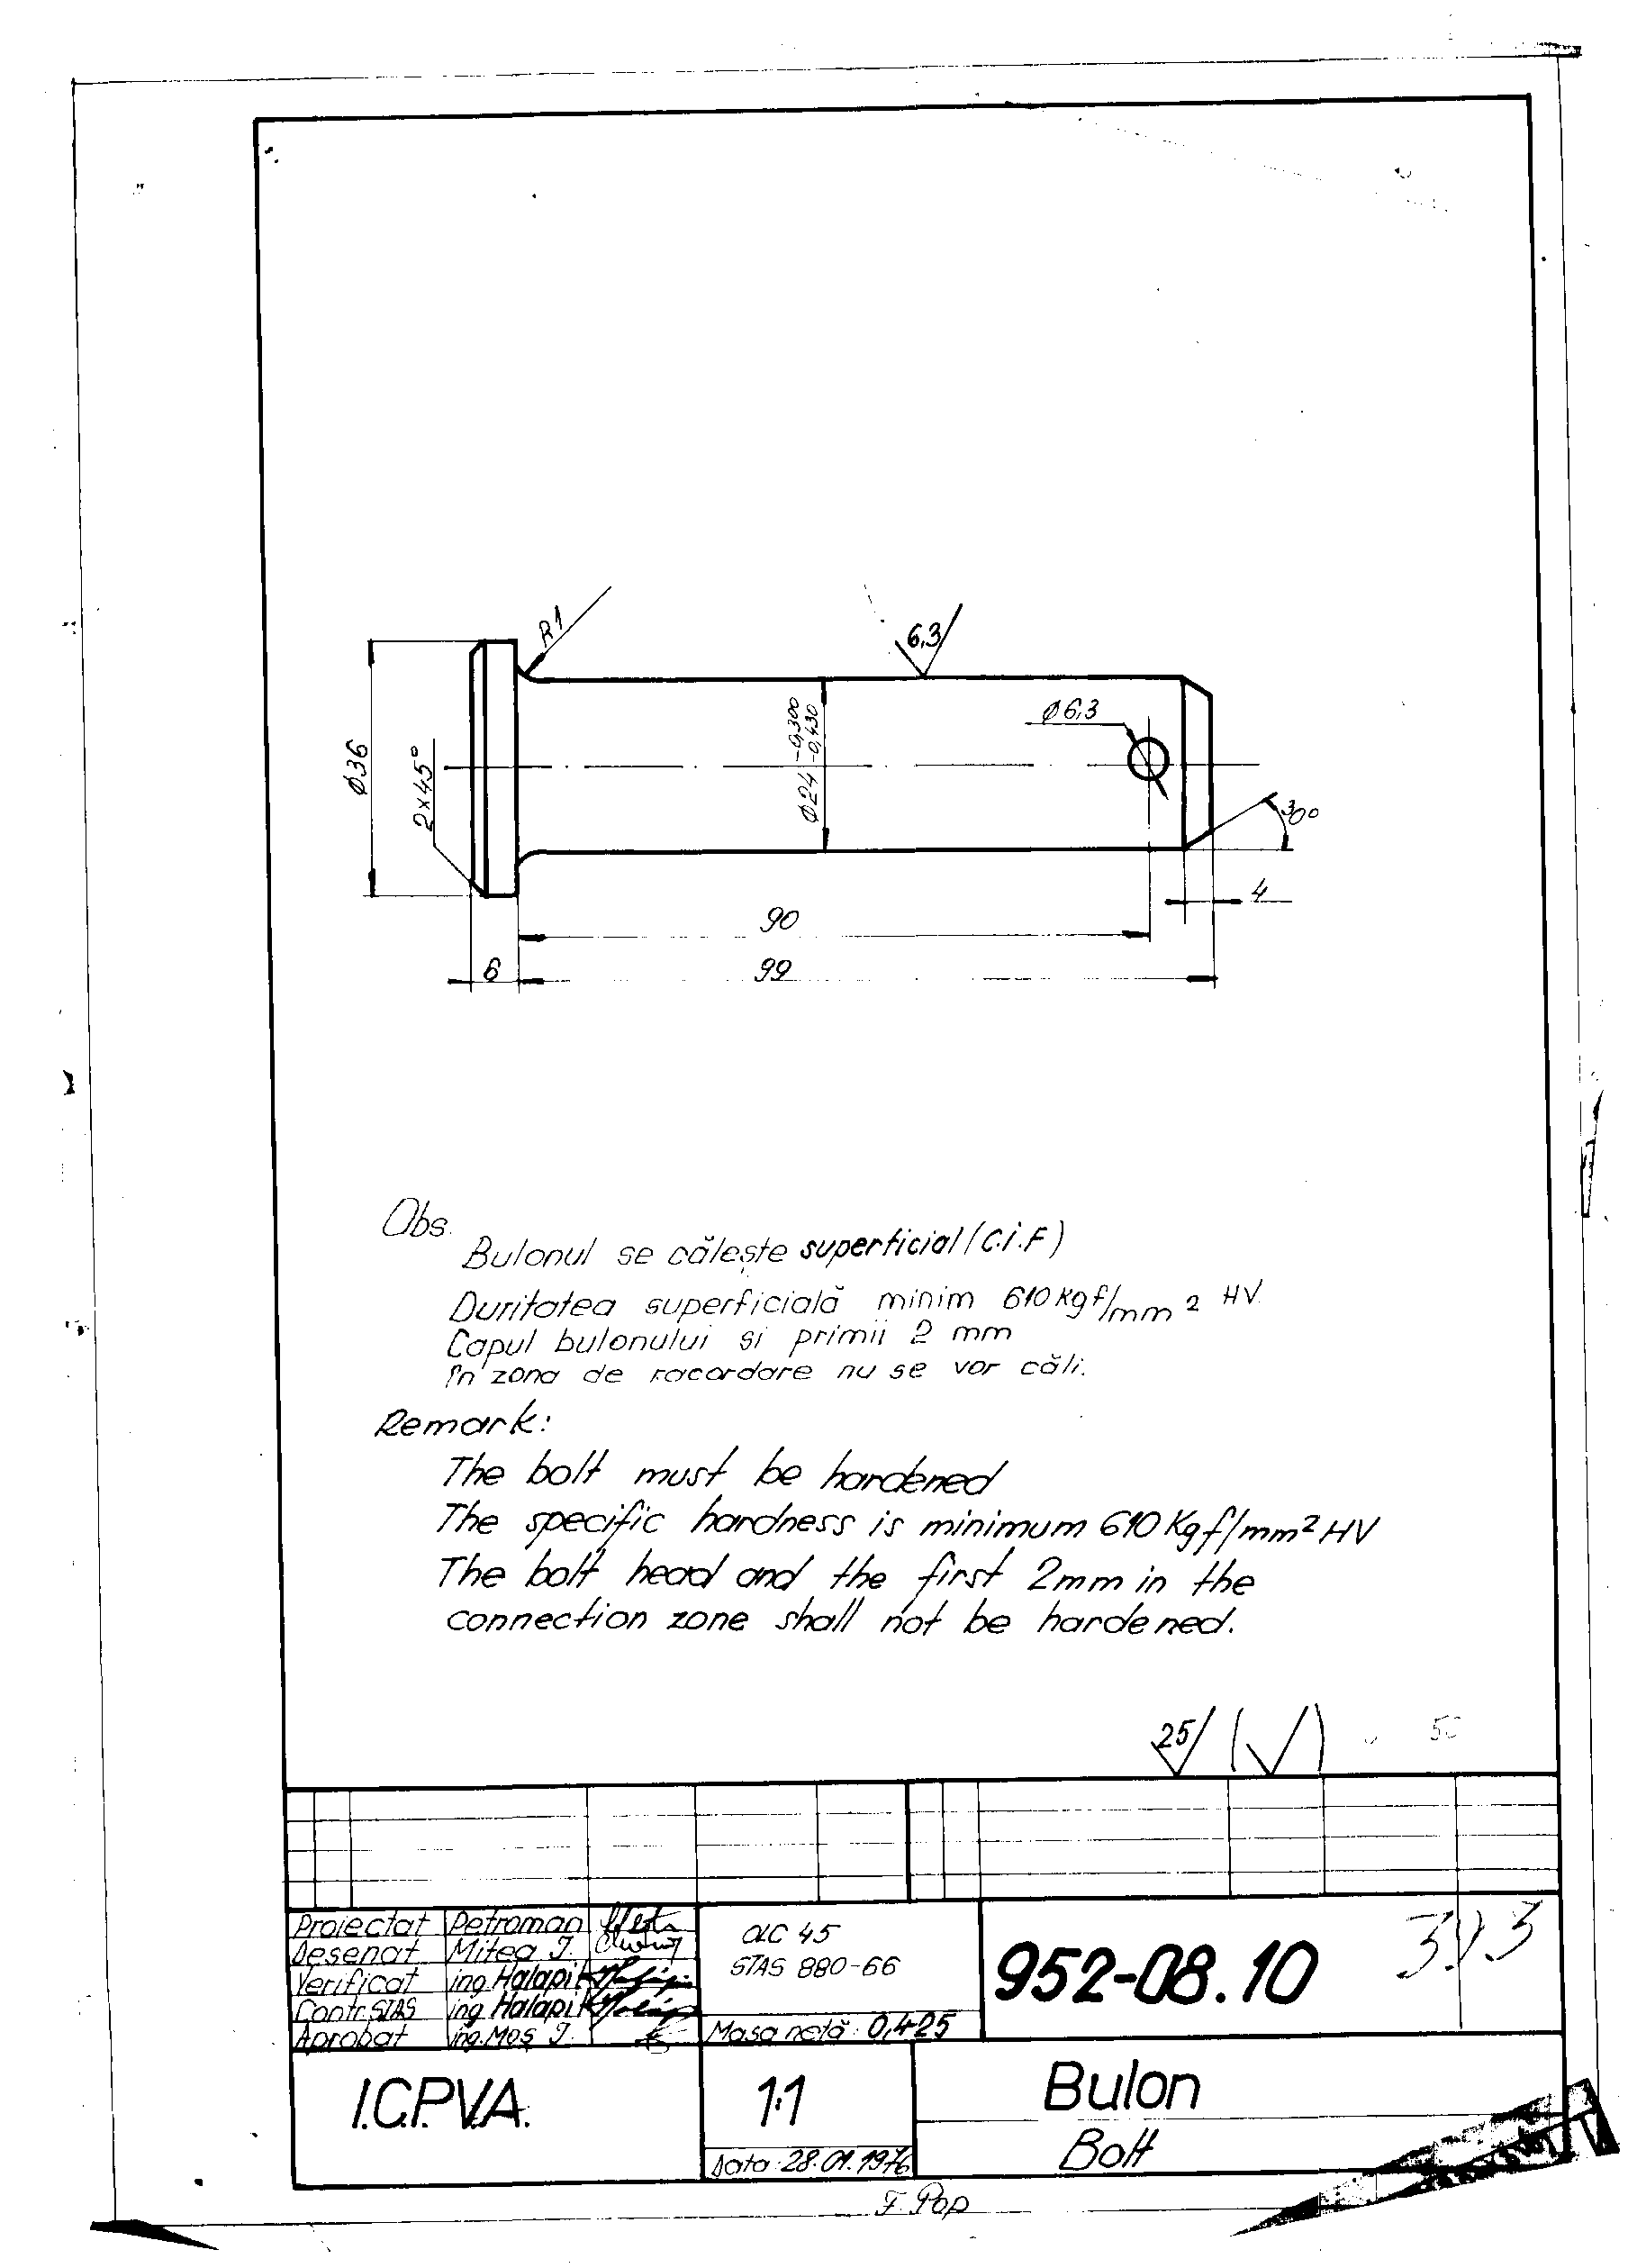 R1
6,3
Ø36
2x45°
Ø24 -0,300 -0,430
Ø6,3
30°
4
90
6
99
Obs.
Bulonul se călește superficial (C.i.F)
Duritatea superficială minim 610 Kgf/mm2 HV.
Capul bulonului si primii 2 mm
în zona de racordare nu se vor căli.
Remark:
The bolt must be hardened
The specific hardness is minimum 610 Kgf/mm2 HV
The bolt head and the first 2mm in the
connection zone shall not be hardened.
25/ (√)
Proiectat Petroman
Desenat Mitea I.
Verificat ing. Halapi K
Contr. STAS ing. Halapi K
Aprobat ing. Moș I.
OLC 45
STAS 880-66
Masa netă: 0,425
952-08.10
I.C.P.V.A.
1:1
Data: 28.01.1976
Bulon
Bolt
F. Pop